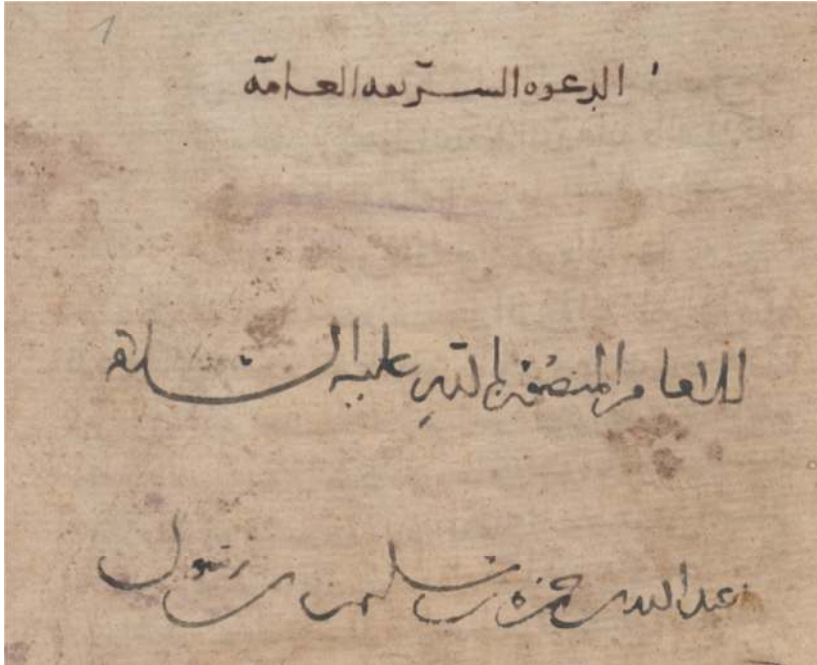 1
الدعوه الشريفه العامة
للامام المنصور بالله عليه السلام
عبدالله بن حمزه بن سليمن بن رسول